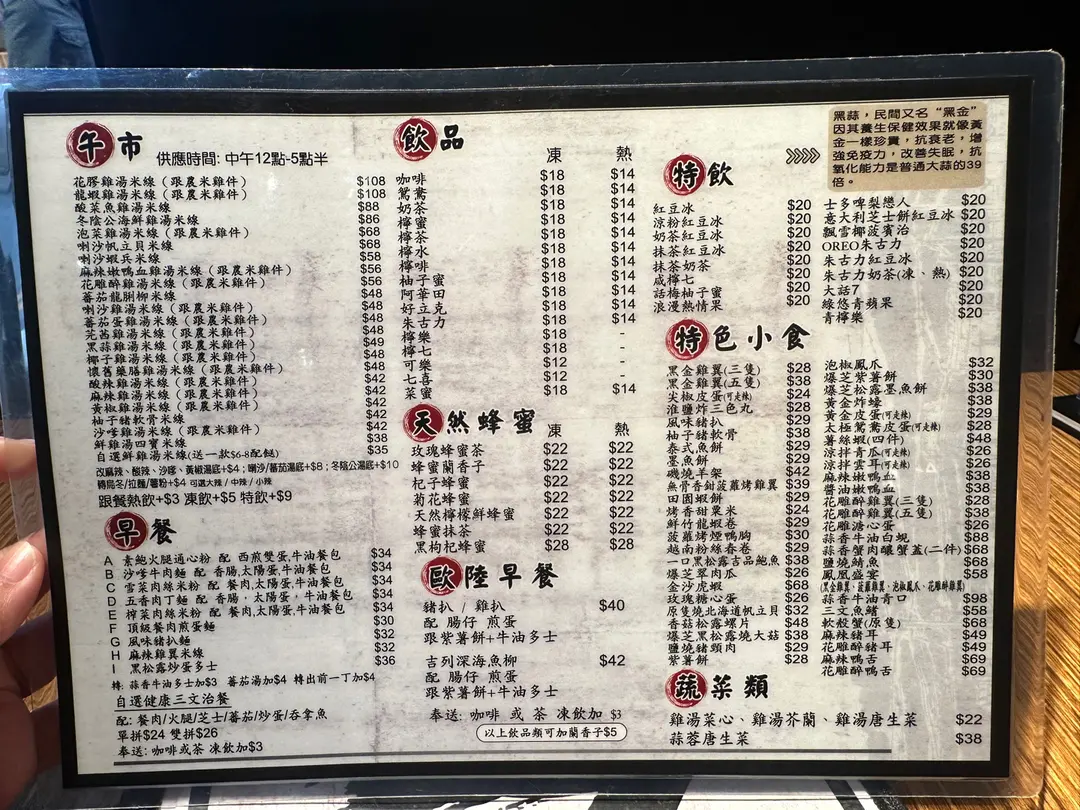 午市 供應時間: 中午12點-5點半
花膠雞湯米線（跟農米雞件） $108
龍蝦雞湯米線（跟農米雞件） $108
酸菜魚雞湯米線 $88
冬陰公海鮮雞湯米線 $86
泡菜雞湯米線（跟農米雞件） $68
喇沙帆立貝米線 $68
喇沙蝦兵米線 $58
麻辣嫩鴨血雞湯米線（跟農米雞件） $56
花雕醉雞湯米線（跟農米雞件） $56
蕃茄龍脷柳米線 $48
喇沙雞湯米線（跟農米雞件） $48
蕃茄蛋雞湯米線（跟農米雞件） $48
芫茜雞湯米線（跟農米雞件） $48
黑蒜雞湯米線（跟農米雞件） $49
椰子雞湯米線（跟農米雞件） $48
懷舊藥膳雞湯米線（跟農米雞件） $48
酸辣雞湯米線（跟農米雞件） $42
麻辣雞湯米線（跟農米雞件） $42
黃椒雞湯米線（跟農米雞件） $42
柚子豬軟骨米線 $42
沙嗲雞湯米線（跟農米雞件） $42
鮮雞湯四寶米線 $38
自選鮮雞湯米線(送一款$6-8配餸) $35
改麻辣、酸辣、沙嗲、黃椒湯底+$4；喇沙/蕃茄湯底+$8；冬陰公湯底+$10
轉烏冬/拉麵/薯粉+$4 可選大辣 / 中辣 / 小辣
跟餐熱飲+$3 凍飲+$5 特飲+$9
早餐
A 素鮑火腿通心粉 配 西煎雙蛋,牛油餐包 $34
B 沙嗲牛肉麵 配 香腸,太陽蛋,牛油餐包 $34
C 雪菜肉絲米粉 配 餐肉,太陽蛋,牛油餐包 $34
D 五香肉丁麵 配 香腸，太陽蛋，牛油餐包 $34
E 榨菜肉絲米粉 配 餐肉,太陽蛋,牛油餐包 $34
F 頂級餐肉煎蛋麵 $30
G 風味豬扒麵 $32
H 麻辣雞翼米線 $32
I 黑松露炒蛋多士 $36
轉: 蒜香牛油多士加$3 蕃茄湯加$4 轉出前一丁加$4
自選健康三文治餐
配: 餐肉/火腿/芝士/蕃茄/炒蛋/吞拿魚
單拼$24 雙拼$26
奉送: 咖啡或茶 凍飲加$3
飲品
凍 熱
咖啡 $18 $14
鴛鴦 $18 $14
奶茶 $18 $14
檸蜜 $18 $14
檸茶 $18 $14
檸水 $18 $14
檸啡 $18 $14
柚子蜜 $18 $14
阿華田 $18 $14
好立克 $18 $14
朱古力 $18 $14
檸樂 $18 -
檸七 $18 -
可樂 $12 -
七喜 $12 -
菜蜜 $18 $14
天然蜂蜜 凍 熱
玫瑰蜂蜜茶 $22 $22
蜂蜜蘭香子 $22 $22
杞子蜂蜜 $22 $22
菊花蜂蜜 $22 $22
天然檸檬鮮蜂蜜 $22 $22
蜂蜜抹茶 $22 $22
黑枸杞蜂蜜 $28 $28
歐陸早餐
豬扒 / 雞扒 $40
配 腸仔 煎蛋
跟紫薯餅+牛油多士
吉列深海魚柳 $42
配 腸仔 煎蛋
跟紫薯餅+牛油多士
奉送: 咖啡 或 茶 凍飲加 $3
以上飲品類可加蘭香子$5
黑蒜，民間又名“黑金”
因其養生保健效果就像黃
金一樣珍貴，抗衰老，增
強免疫力，改善失眠，抗
氧化能力是普通大蒜的39
倍。
特飲
紅豆冰 $20
涼粉紅豆冰 $20
奶茶紅豆冰 $20
抹茶紅豆冰 $20
抹茶奶茶 $20
咸檸七 $20
話梅柚子蜜 $20
浪漫熱情果 $20
士多啤梨戀人 $20
意大利芝士餅紅豆冰 $20
飄雪椰菠賓治 $20
OREO朱古力 $20
朱古力紅豆冰 $20
朱古力奶茶(凍、熱) $20
大話7 $20
綠悠青蘋果 $20
青檸樂 $20
特色小食
黑金雞翼(三隻) $28
黑金雞翼(五隻) $38
尖椒皮蛋(可走辣) $24
淮鹽炸三色丸 $28
風味豬扒 $29
柚子豬軟骨 $38
泰式魚餅 $29
墨魚餅 $29
磯燒羊架 $42
無骨香鉗菠蘿烤雞翼 $39
田園蝦餅 $29
烤香甜粟米 $24
鮮竹龍蝦卷 $29
菠蘿烤煙鴨胸 $30
越南粉絲春卷 $29
一口黑松露吉品鮑魚 $38
爆芝翠肉瓜 $26
金沙虎蝦 $68
玫瑰糖心蛋 $26
原隻燒北海道帆立貝 $32
香菇松露螺片 $48
爆芝黑松露燒大菇 $38
鹽燒豬頸肉 $29
紫薯餅 $28
泡椒鳳爪 $32
爆芝紫薯餅 $30
爆芝松露墨魚餅 $38
黃金炸蠔 $38
黃金皮蛋(可走辣) $29
太極鴛鴦皮蛋(可走辣) $28
薯絲蝦(四件) $48
涼拌青瓜(可走辣) $26
涼拌雲耳(可走辣) $26
麻辣嫩鴨血 $38
醬油嫩鴨血 $38
花雕醉雞翼(三隻) $28
花雕醉雞翼(五隻) $38
花雕溏心蛋 $26
蒜香牛油白蜆 $88
蒜香蟹肉釀蟹蓋(二件) $68
鹽燒鯖魚 $68
鳳凰盛宴 $58
(黑金雞翼、菠蘿雞翼、泡椒鳳爪、花雕醉雞翼)
蒜香牛油青口 $98
三文魚鰭 $58
軟殼蟹(原隻) $68
麻辣豬耳 $49
花雕醉豬耳 $49
麻辣鴨舌 $69
花雕醉鴨舌 $69
蔬菜類
雞湯菜心、雞湯芥蘭、雞湯唐生菜 $22
蒜蓉唐生菜 $38